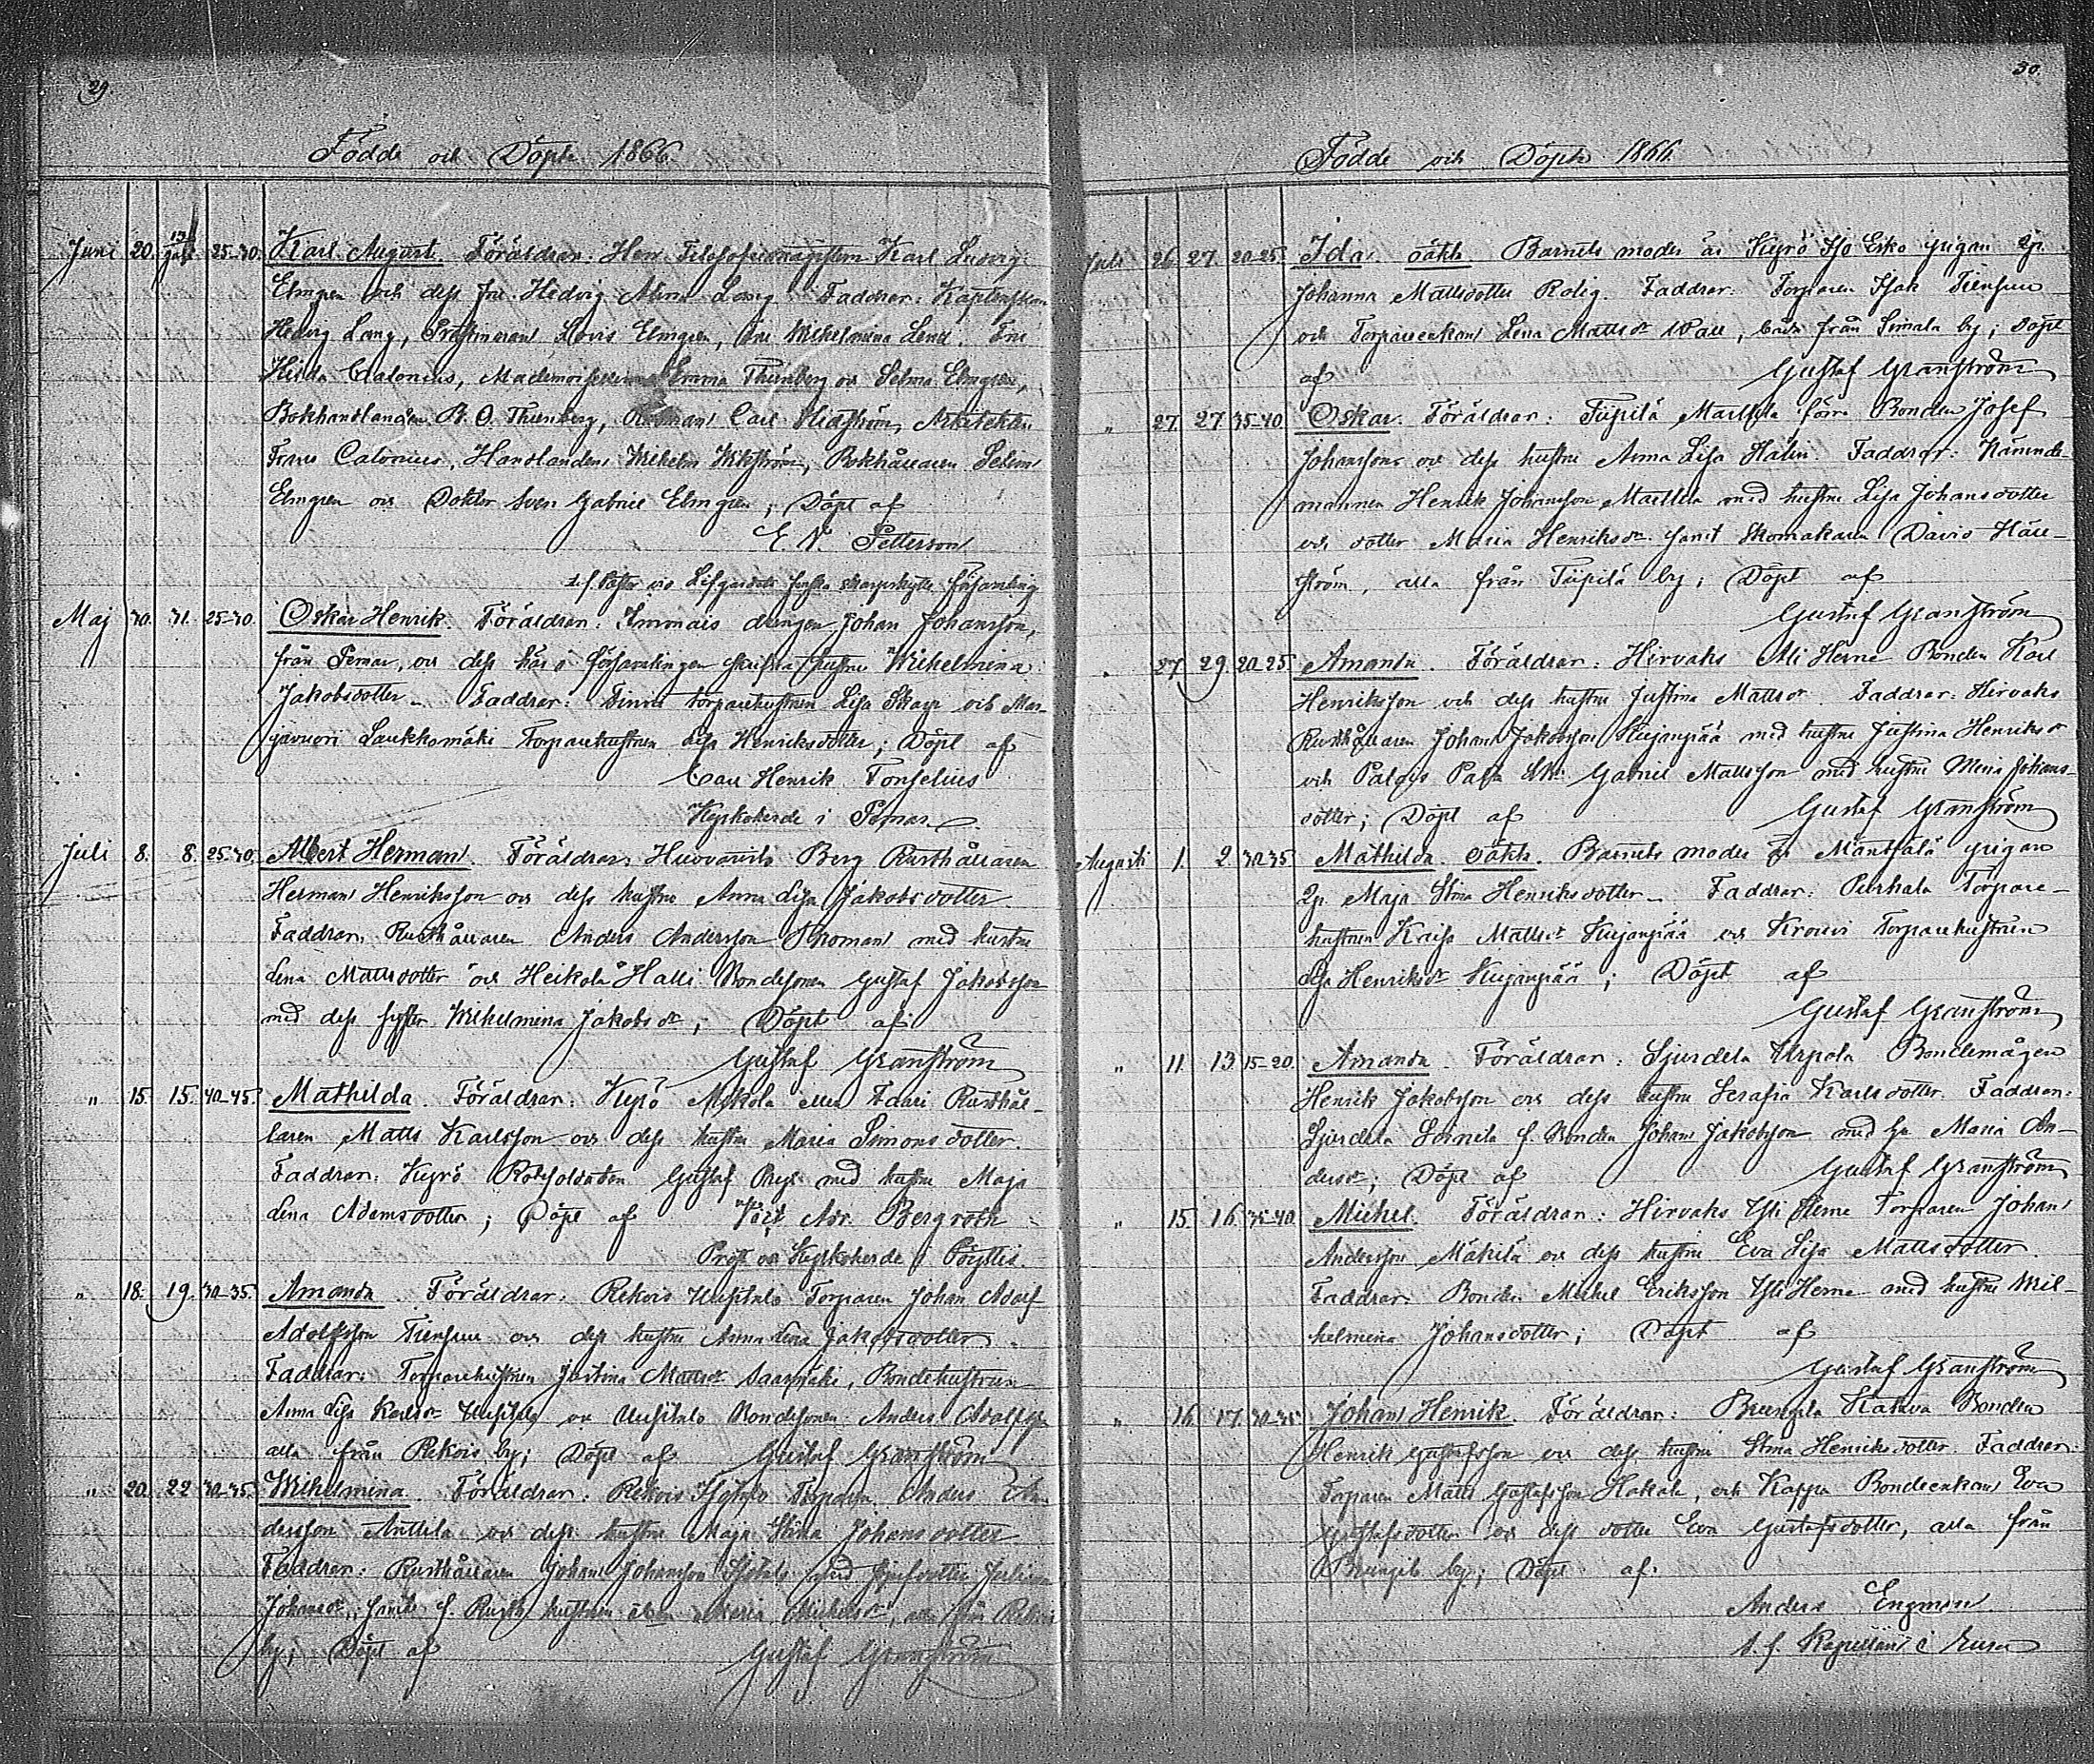 29.
Födde och Döpte 1866.
Juni 20. 13 Juli 25-30. Karl August. Föräldrar: Herr Filosofiemagistern Karl Ludvig
Elmgren och dess fru Hedvig Alma Lang. Faddrar: Kaptenskan
Hedvig Lang, Lovis Elmgren, Fru Wilhelmina Fru
Hilda Calonius, Mademoisellerna Emma Thunberg och Selma Elmgren,
Bokhandlanden B. O. Thunberg, Carl Arkitekten
Frans Calonius, Handlanden Wilhelm Wikström, Bokhållaren
Elmgren och Doktor Sven Gabriel Elmgren; Döpt af
E. N. Petterson
t.f. Pastor vid Lifgardets finska skarpskytte församling
Maj 30. 31. 25-30. Oskar Henrik. Föräldrar: Immais drengen Johan Johansson,
från Pemar, och dess här i församlingen skrifna hustru Wilhelmina
Jakobsdotter. Faddrar: torparehustrun Lisa Skarp och Mar-
javuori Laukkomäki Torparehustrun Lisa Henriksdotter; Döpt af
Carl Henrik Tonselius
Kyrkoherde i Pemar.
Juli 8. 8. 25-30. Albert Herman. Föräldrar: Huovarists Berg Rusthållaren
Herman Henriksson och dess hustru Anna Lisa Jakobsdotter.
Faddrar: Rusthållaren Anders Andersson Skoman med hustru
Lena Mattsdotter och Heikola Halli Bondesonen Gustaf Jakobsson
med dess syster Wilhelmina Jakobsdr; Döpt af
Gustaf Granström
„ 15. 15. 40-45. Mathilda. Föräldrar: Kyrö Rusthål-
laren Matts Karlsson och dess hustru Maria Simonsdotter.
Faddrar: Kyrö Rotesoldaten Gustaf med hustru Maja
Lena Adamsdotter; Döpt af Adr. Bergroth
Prost och Kyrkoherde i Pöytis.
„ 18. 19. 30-35. Amanda. Föräldrar: Rekois Uusitalo Torparen Johan Adolf
Adolfsson Tiensuu och dess hustru Anna Lena Jakobsdotter.
Faddrar: Torparehustrun Justina Mattsdr Saarimäki, Bondehustrun
Anna Lisa Karlsdr Uusitalo och Uusitalo Bondesonen Anders Adolfsson
alla från Rekois by; Döpt af Gustaf Granström
„ 20. 22. 30-35. Wilhelmina. Föräldrar: Rekois Isotalo Torparen Anders An-
dersson Anttila och dess hustru Maja Stina Johansdotter.
Faddrar: Rusthållaren Johan Johansson Isotalo med
Johansdr, samt f. Rusth. hustrun Maria Michelsdr, alla från Rekois
by; Döpt af Gustaf Granström
30.
Födde och Döpte 1866.
Juli 26. 27. 20-25. Ida, oäkta. Barnets moder är Kyrö Iso Esko pigan
Johanna Mattsdotter Rolig. Faddrar: Torparen Isak Tiensuu
och Torpareenkan Lena Mattsdr Wall, båda från Simala by; Döpt
af Gustaf Granström
„ 27. 27. 35-40. Oskar. Föräldrar: Tüpilä Marttila förra Bonden Josef
Johansson och dess hustru Anna Lisa Hälin. Faddrar: Nämnde-
mannen Henrik Johansson Marttila med hustru Lisa Johansdotter
och dotter Maria Henriksdr samt Skomakaren David Häll-
ström, alla från Tüpilä by; Döpt af
Gustaf Granström
„ 27. 29. 20-25. Amanda. Föräldrar: Hirvaks Ali Herne Bonden Karl
Henriksson och dess hustru Justina Mattsdr. Faddrar: Hirvaks
Rusthållaren Johan Jakobsson Kujanpää med hustru Justina Henriksdr
och Gabriel Mattsson med hustru Maria Johans-
dotter; Döpt af Gustaf Granström
Augusti 1. 2. 30-35. Mathilda. oäkta. Barnets moder är Mäntsälä pigan
Maja Stina Henriksdotter. Faddrar: Purhala Torpare-
hustrun Kaisa Mattsdr Kujanpää och Krouvi Torparehustrun
Lisa Henriksdr Kujanpää; Döpt af
Gustaf Granström
„ 11. 13. 15-20. Amanda. Föräldrar: Ljurdela Urpola Bondemågen
Henrik Jakobsson och dess hustru Serafia Karlsdotter. Faddrar:
Ljurdela f. Bonden Johan Jakobsson med hu Maria An-
dersdr; Döpt af Gustaf Granström
„ 15. 16. 35-40. Michel. Föräldrar: Hirvaks Yli Herne Torparen Johan
Andersson Mäkilä och dess hustru Eva Lisa Mattsdotter.
Faddrar: Bonden Mickel Eriksson Yli Herne med hustru Wil-
helmina Johansdotter; Döpt af
Gustaf Granström
„ 16. 17. 30-35. Johan Henrik. Föräldrar: Kakva Bonden
Henrik Gustafsson och dess hustru Stina Henriksdotter. Faddrar:
Torparen Matts Gustafsson Hakala, och Kappa Bondeenkan Eva
Gustafsdotter och dess dotter Eva Gustafsdotter, alla från
by; Döpt af
Anders Engman
t. f. Kapellan i Eura